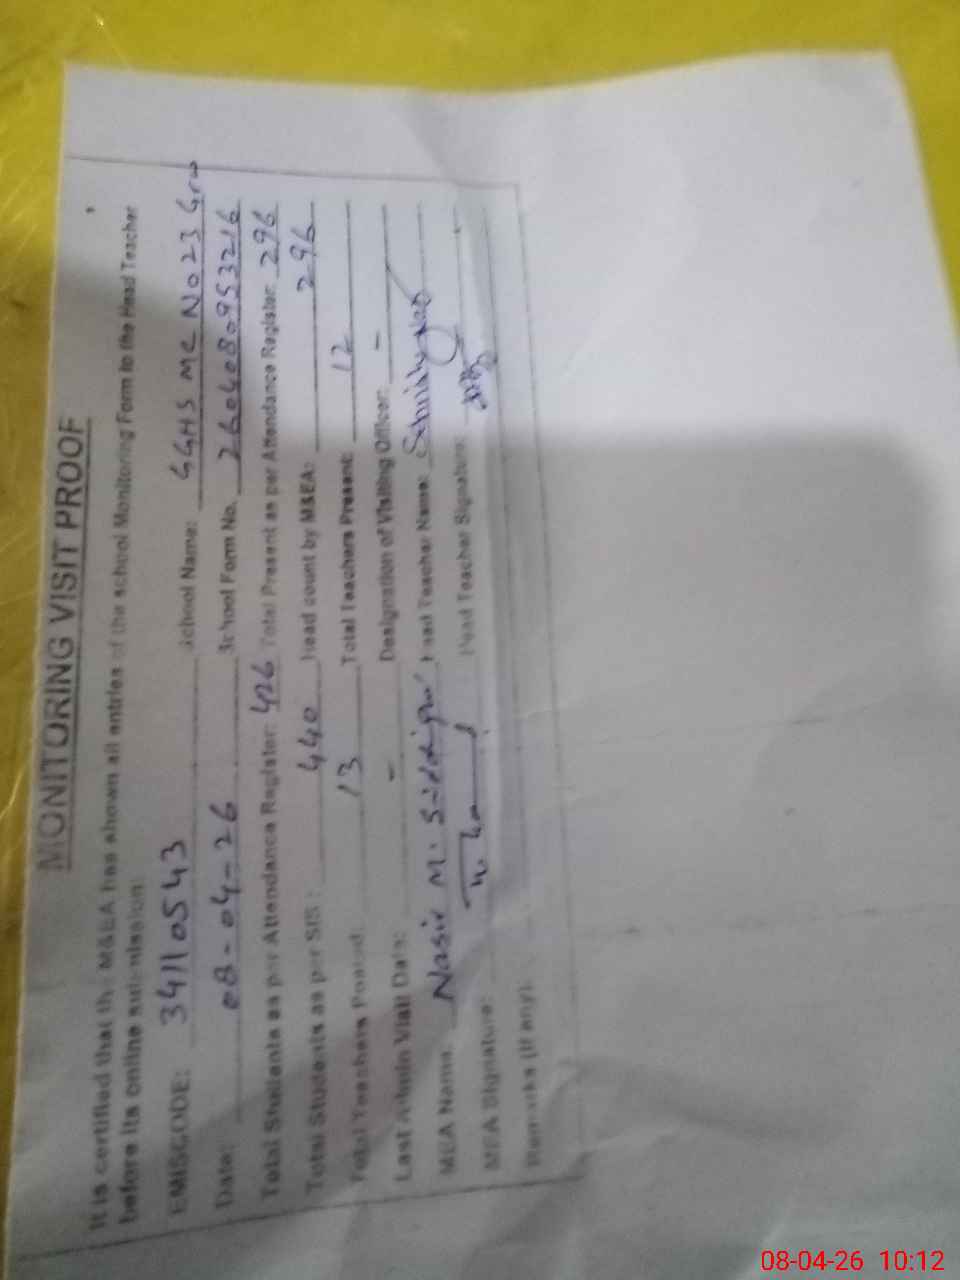 MONITORING VISIT PROOF
It is certified that the M&EA has shown all entries of the school Monitoring Form to the Head Teacher
before its online submission:
EMISCODE: 34110543 School Name: GGHS MC No 23 Grw
Date: 08-04-26 School Form No. 260408095 3216
Total Students as per Attendance Register: 426 Total Present as per Attendance Register: 296
Total Students as per SIS: 440 Head count by M&EA: 296
Total Teachers Posted: 13 Total Teachers Present: 12
Last Admin Visit Date: - Designation of Visiting Officer: -
MEA Name: Nasir M. Siddiqui Head Teacher Name:
MEA Signature: Head Teacher Signature:
Remarks (If any):
08-04-26 10:12